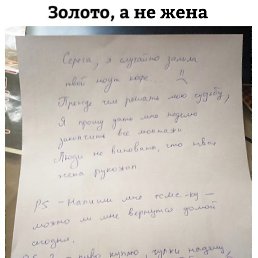 Золото, а не жена
Серега, я случайно залила
твой ноут кофе. !!
Прежде чем решать мою судьбу,
Я прошу дать мне неделю
закончить все монтажи
Люди не виноваты, что твоя
жена рукожоп
PS - Напиши мне
можно ли мне вернуться домой
сегодня.
пиво куплю,